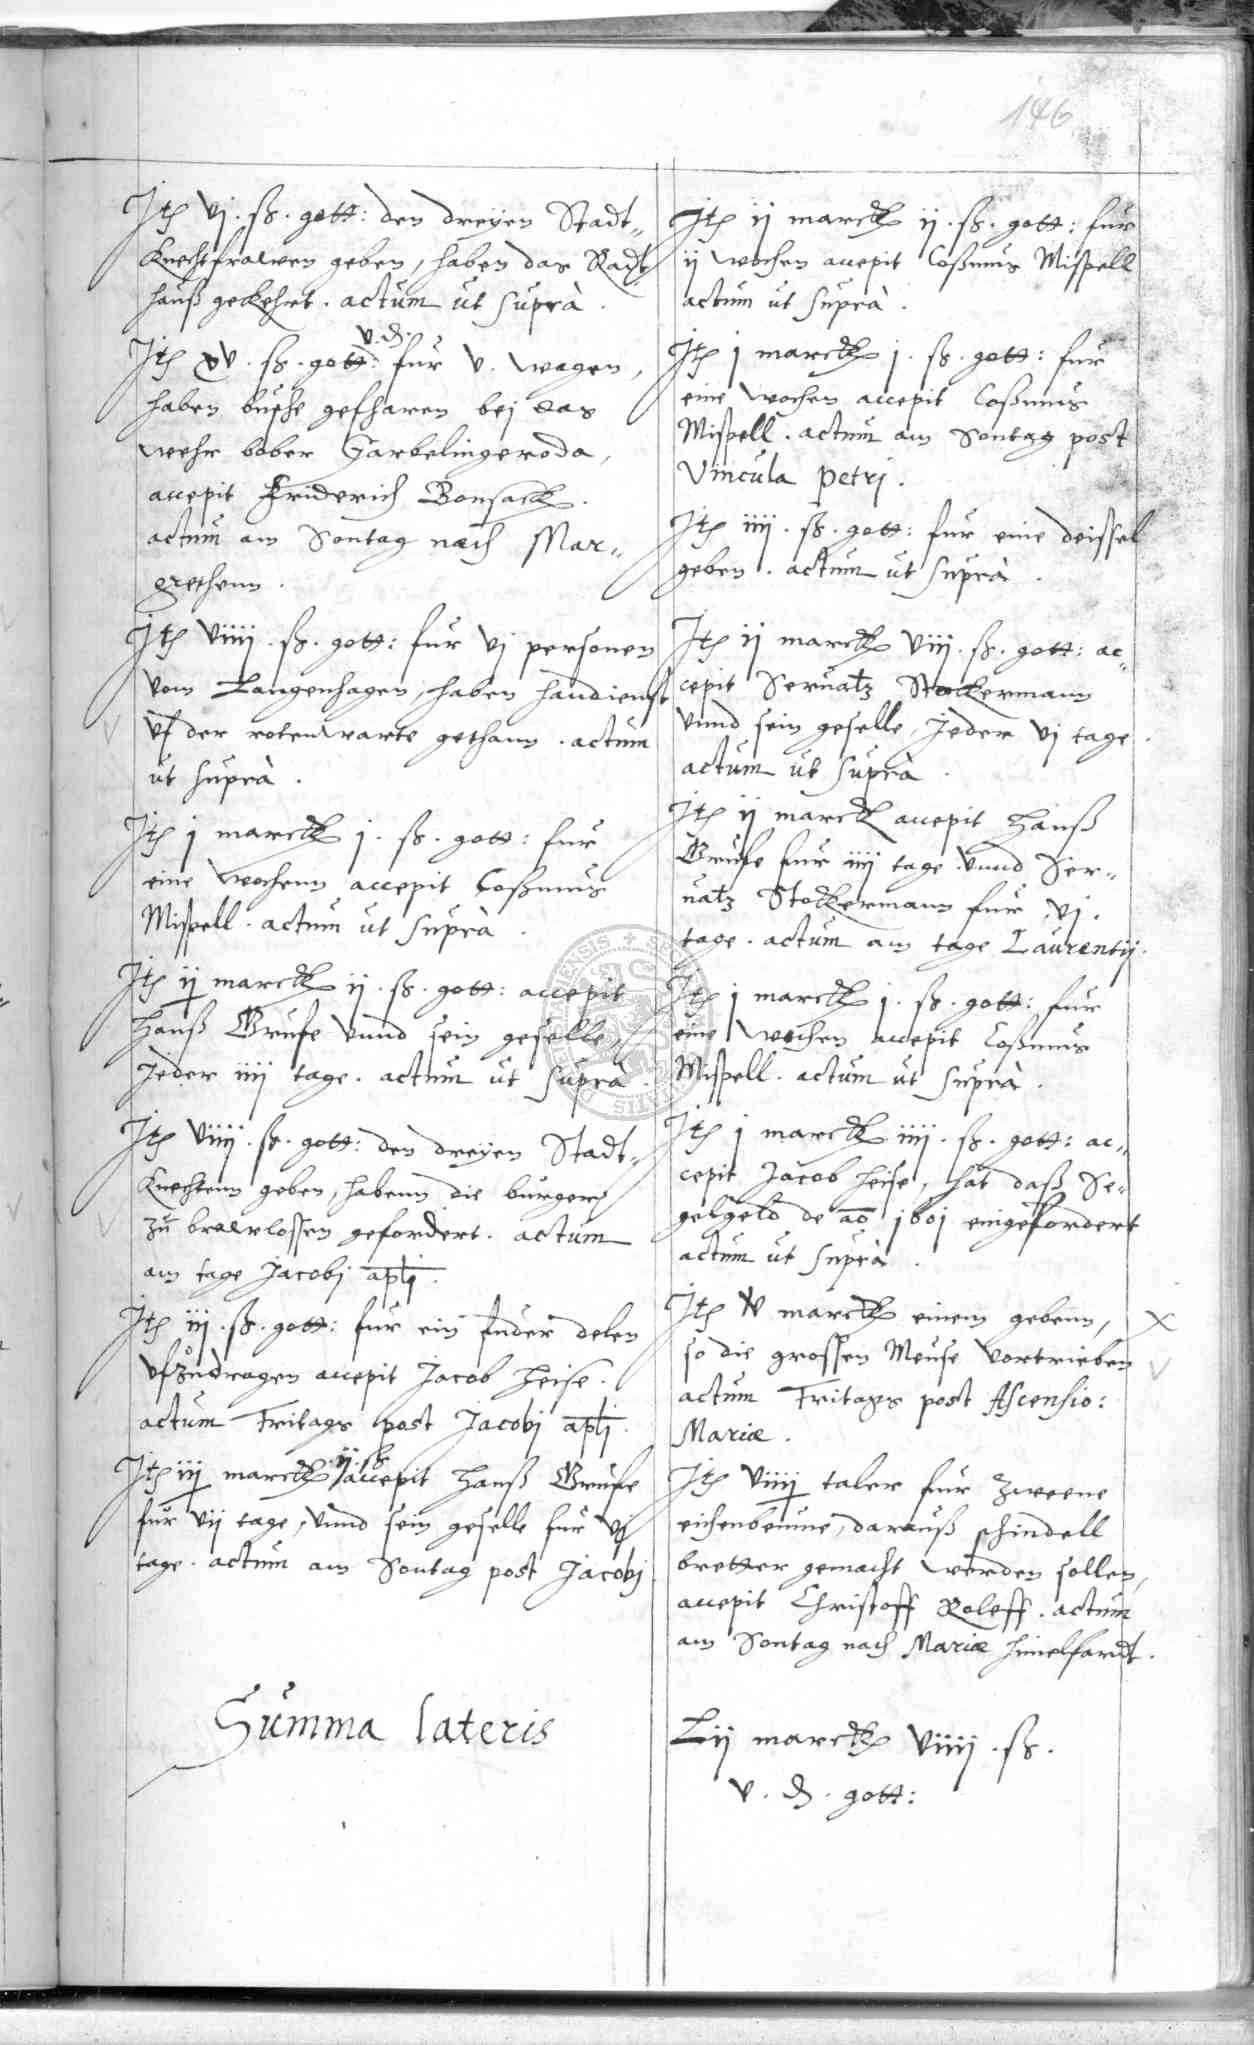 146
Jtem vj. ß. gott: den dreyen Stadt-
knechtfrawen geben, haben das Radt
hauß gekehrt. actum ut suprà.
v. ₰.
Jtem xv. ß. gott: fur v. wagen,
haben busche gefharen bej das
wehr bober Garbelingeroda,
accepit Friderich Bonsack.
actum am Sontag nach Mar-
grethenn.
Jtem viiij. ß. gott: fur vj personen
vom Langenhagen, haben handienst
vf der rotenwarte gethann. actum
ut suprà.
Jtem j marck j. ß. gott: fur
eine wochenn accepit Coßmus
Mispell. actum ut suprà.
Jtem ij marck ij. ß. gott: accepit
Hanß Grufe vnnd sein geselle,
Jeder iiij tage. actum ut suprà.
Jtem viiij. ß. gott: den dreyen Stadt-
knechtenn geben, habenn die burger
zu brawlossen gefordert. actum
am tage Jacobj apli.
Jtem iij. ß. gott: fur ein fuder delen
vfzudragen accepit Jacob Heise.
actum Fritags post Jacobj apli.
ij. ß
Jtem iij marck accepit Hanß Grufe
fur vij tage, vnnd sein geselle fur vj
tage. actum am Sontag post Jacobj
Summa lateris
Jtem ij marck ij. ß. gott: fur
ij wochen accepit Coßmus Mispell
actum ut suprà.
Jtem j marck j. ß. gott: fur
eine wochen accepit Coßmus
Mispell. actum am Sontag post
Vincula Petrj.
Jtem iiij. ß. gott: fur eine deissel
geben. actum ut suprà.
Jtem ij marck viij. ß. gott: ac-
cepit Seruatz Stockermann
vnnd sein geselle, Jeder vj tage.
actum ut suprà.
Jtem ij marck accepit Hanß
Grufe fur iiij tage vnnd Ser-
uatz Stockermann fur vj.
tage. actum am tage Laurentij.
Jtem j marck j. ß. gott: fur
eine wochen accepit Coßmus
Mispell. actum ut suprà.
Jtem j marck iiij. ß. gott: ac-
cepit Jacob Heise, hat daß Se-
gelgeld de ao j60j eingefordert
actum ut suprà.
Jtem v marck einem gebenn,
so die grossen Meuse vortrieben
actum Fritags post Ascensio:
Mariæ.
Jtem viiij taler fur zweene
eichenbeume, darauß schindell
bretter gemacht werden sollen,
accepit Christoff Roleff. actum
am Sontag nach Mariæ himelfardt.
Lij marck viiij. ß.
v. ₰. gott: